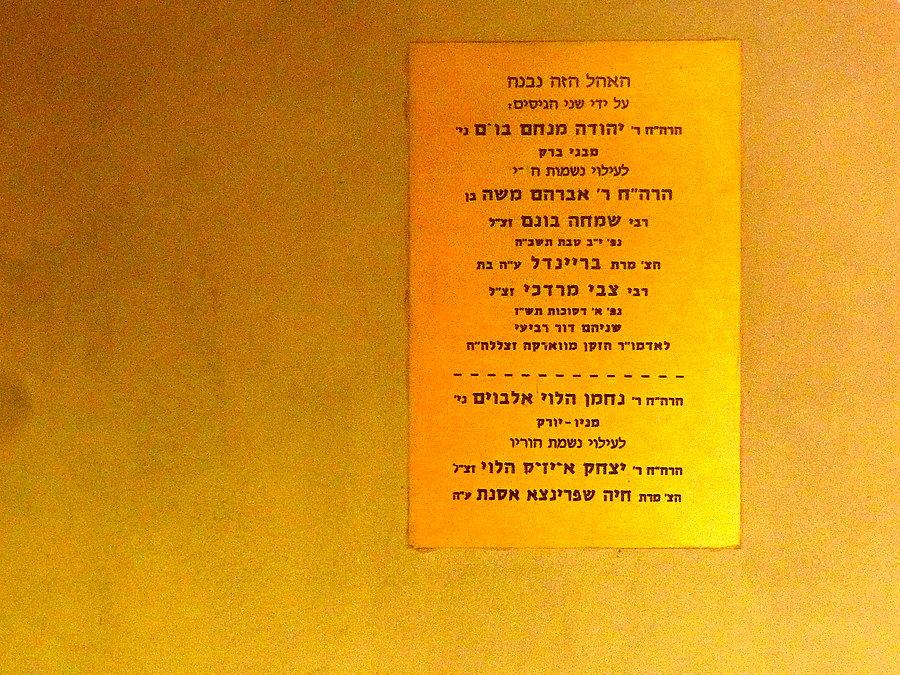 האהל הזה נבנה
על ידי שני הגיסים:
הרה״ח ר׳ יהודה מנחם בו־ם ני׳
מבני ברק
לעילוי נשמות
הרה״ח ר׳ אברהם משה בן
רבי שמחה בונם זצ״ל
נפ׳ י״ב טבת תשכ״ה
חצ׳ מרת בריינדל ע״ה בת
רבי צבי מרדכי זצ״ל
נפ׳ א׳ דסוכות תש״ז
שניהם דור רביעי
לאדמו״ר הזקן מווארקה זצללה״ה
הרה״ח ר׳ נחמן הלוי אלבוים ני׳
מניו-יורק
לעילוי נשמת הוריו
הרה״ח ר׳ יצחק א־יז־ק הלוי זצ״ל
חצ׳ מרת חיה שפרינצא אסנת ע״ה